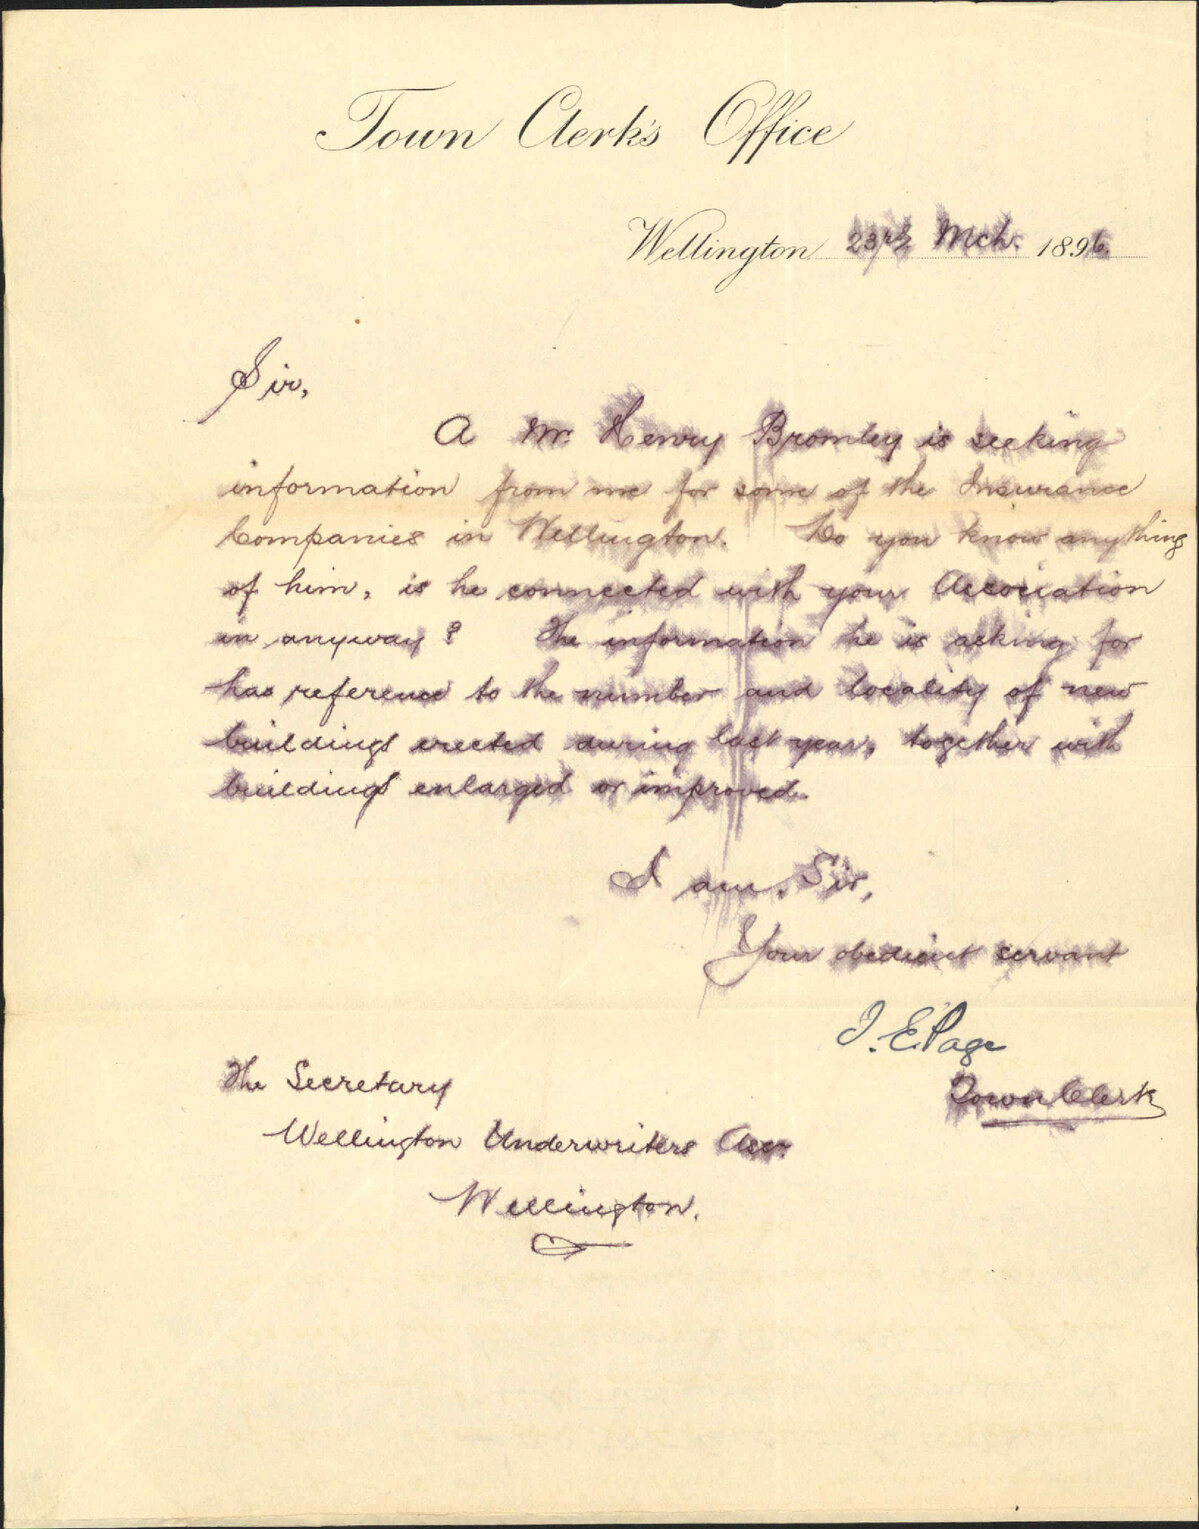 Town Clerk's Office
Wellington 23rd Mch. 1896.
Sir,
A Mr. Henry Bromley is seeking
information from me for some of the Insurance
Companies in Wellington. Do you know anything
of him, is he connected with your Association
in anyway? The information he is asking for
has reference to the number and locality of new
buildings erected during last year, together with
buildings enlarged or improved.
I am, Sir,
Your obedient servant
J. E. Page
Town Clerk
The Secretary
Wellington Underwriters Assn.
Wellington.